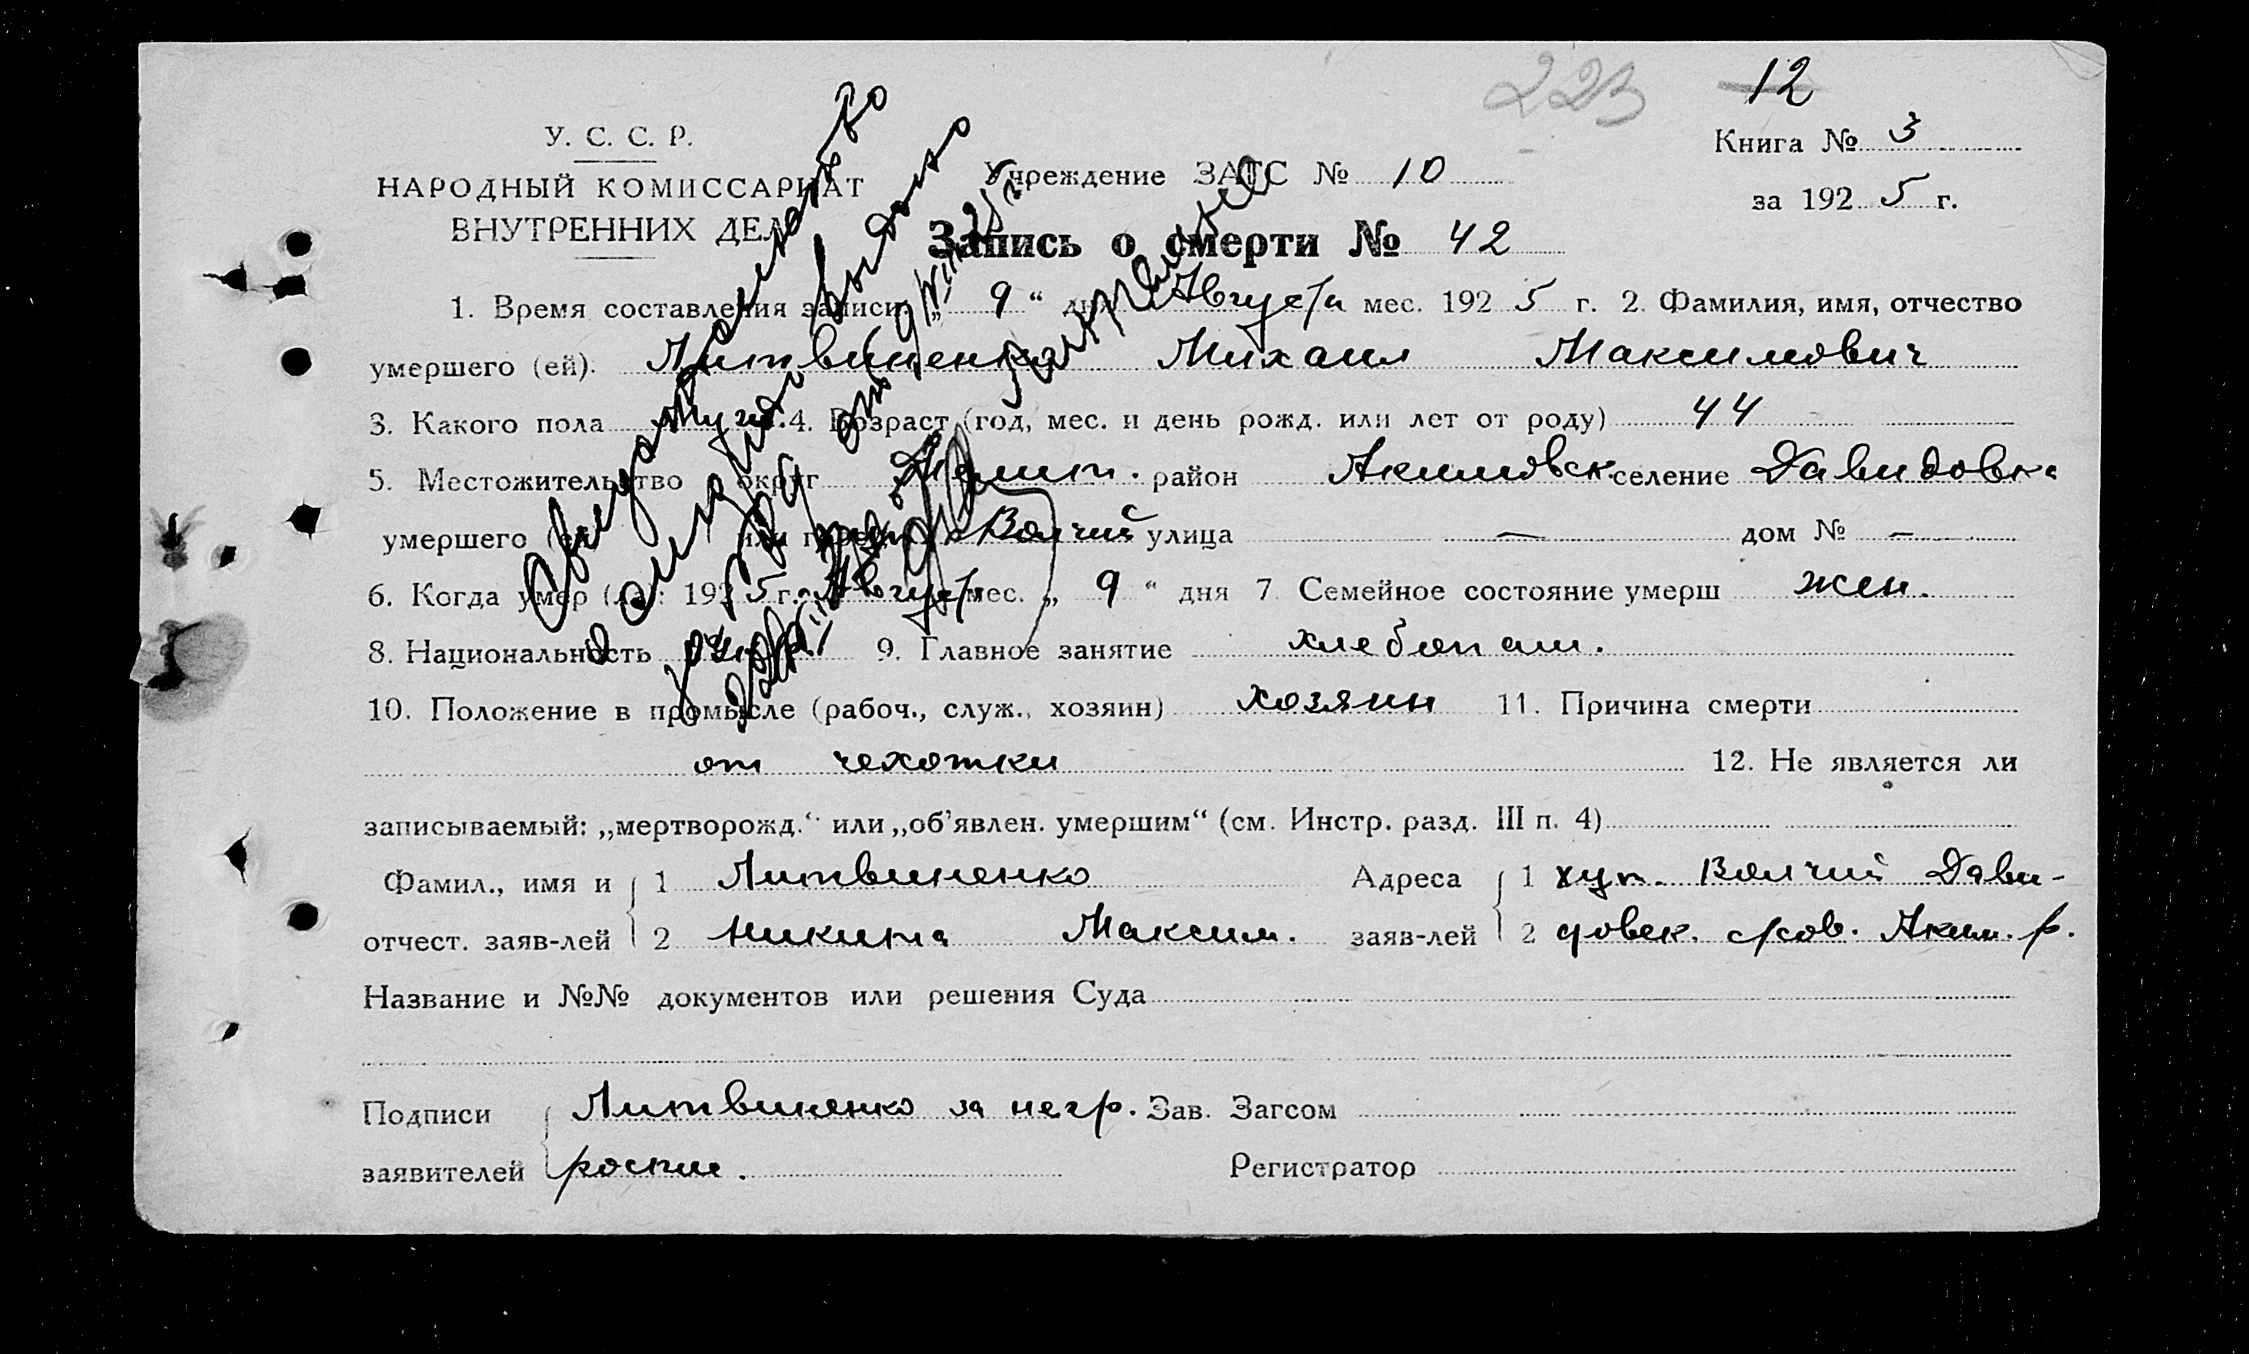 223 12
У. С. С. Р.
НАРОДНЫЙ КОМИССАРИАТ
ВНУТРЕННИХ ДЕЛ
Учреждение ЗАГС № 10
Книга № 3
за 192 5 г.
Запись о смерти № 42
1. Время составления записи: „ 9 “ дня Августа мес. 192 5 г. 2. Фамилия, имя, отчество
умершего (ей). Литвиненко Михаил Максимович
3. Какого пола муж. 4. Возраст (год, мес. и день рожд. или лет от роду) 44
5. Местожительство округ Мелит. район Акимовск. селение Давидовка
умершего или город Волчий улица — дом № —
6. Когда умер (ла): 192 5 г. Августа мес. „ 9 “ дня 7 Семейное состояние умерш жен.
8. Национальность укр. 9. Главное занятие хлебопаш.
10. Положение в промысле (рабоч., служ., хозяин) хозяин 11. Причина смерти
от чехотки 12. Не является ли
записываемый: „мертворожд.“ или „об’явлен. умершим“ (см. Инстр. разд. III п. 4)
Фамил., имя и 1 Литвиненко Адреса 1 хут. Волчий Дави-
отчест. заяв-лей 2 Никита Максим. заяв-лей 2 довск. с/сов. Аким. р.
Название и №№ документов или решения Суда
Подписи Литвиненко за негр. Зав. Загсом
заявителей роспис. Регистратор
Свидетельство
о смерти выдано